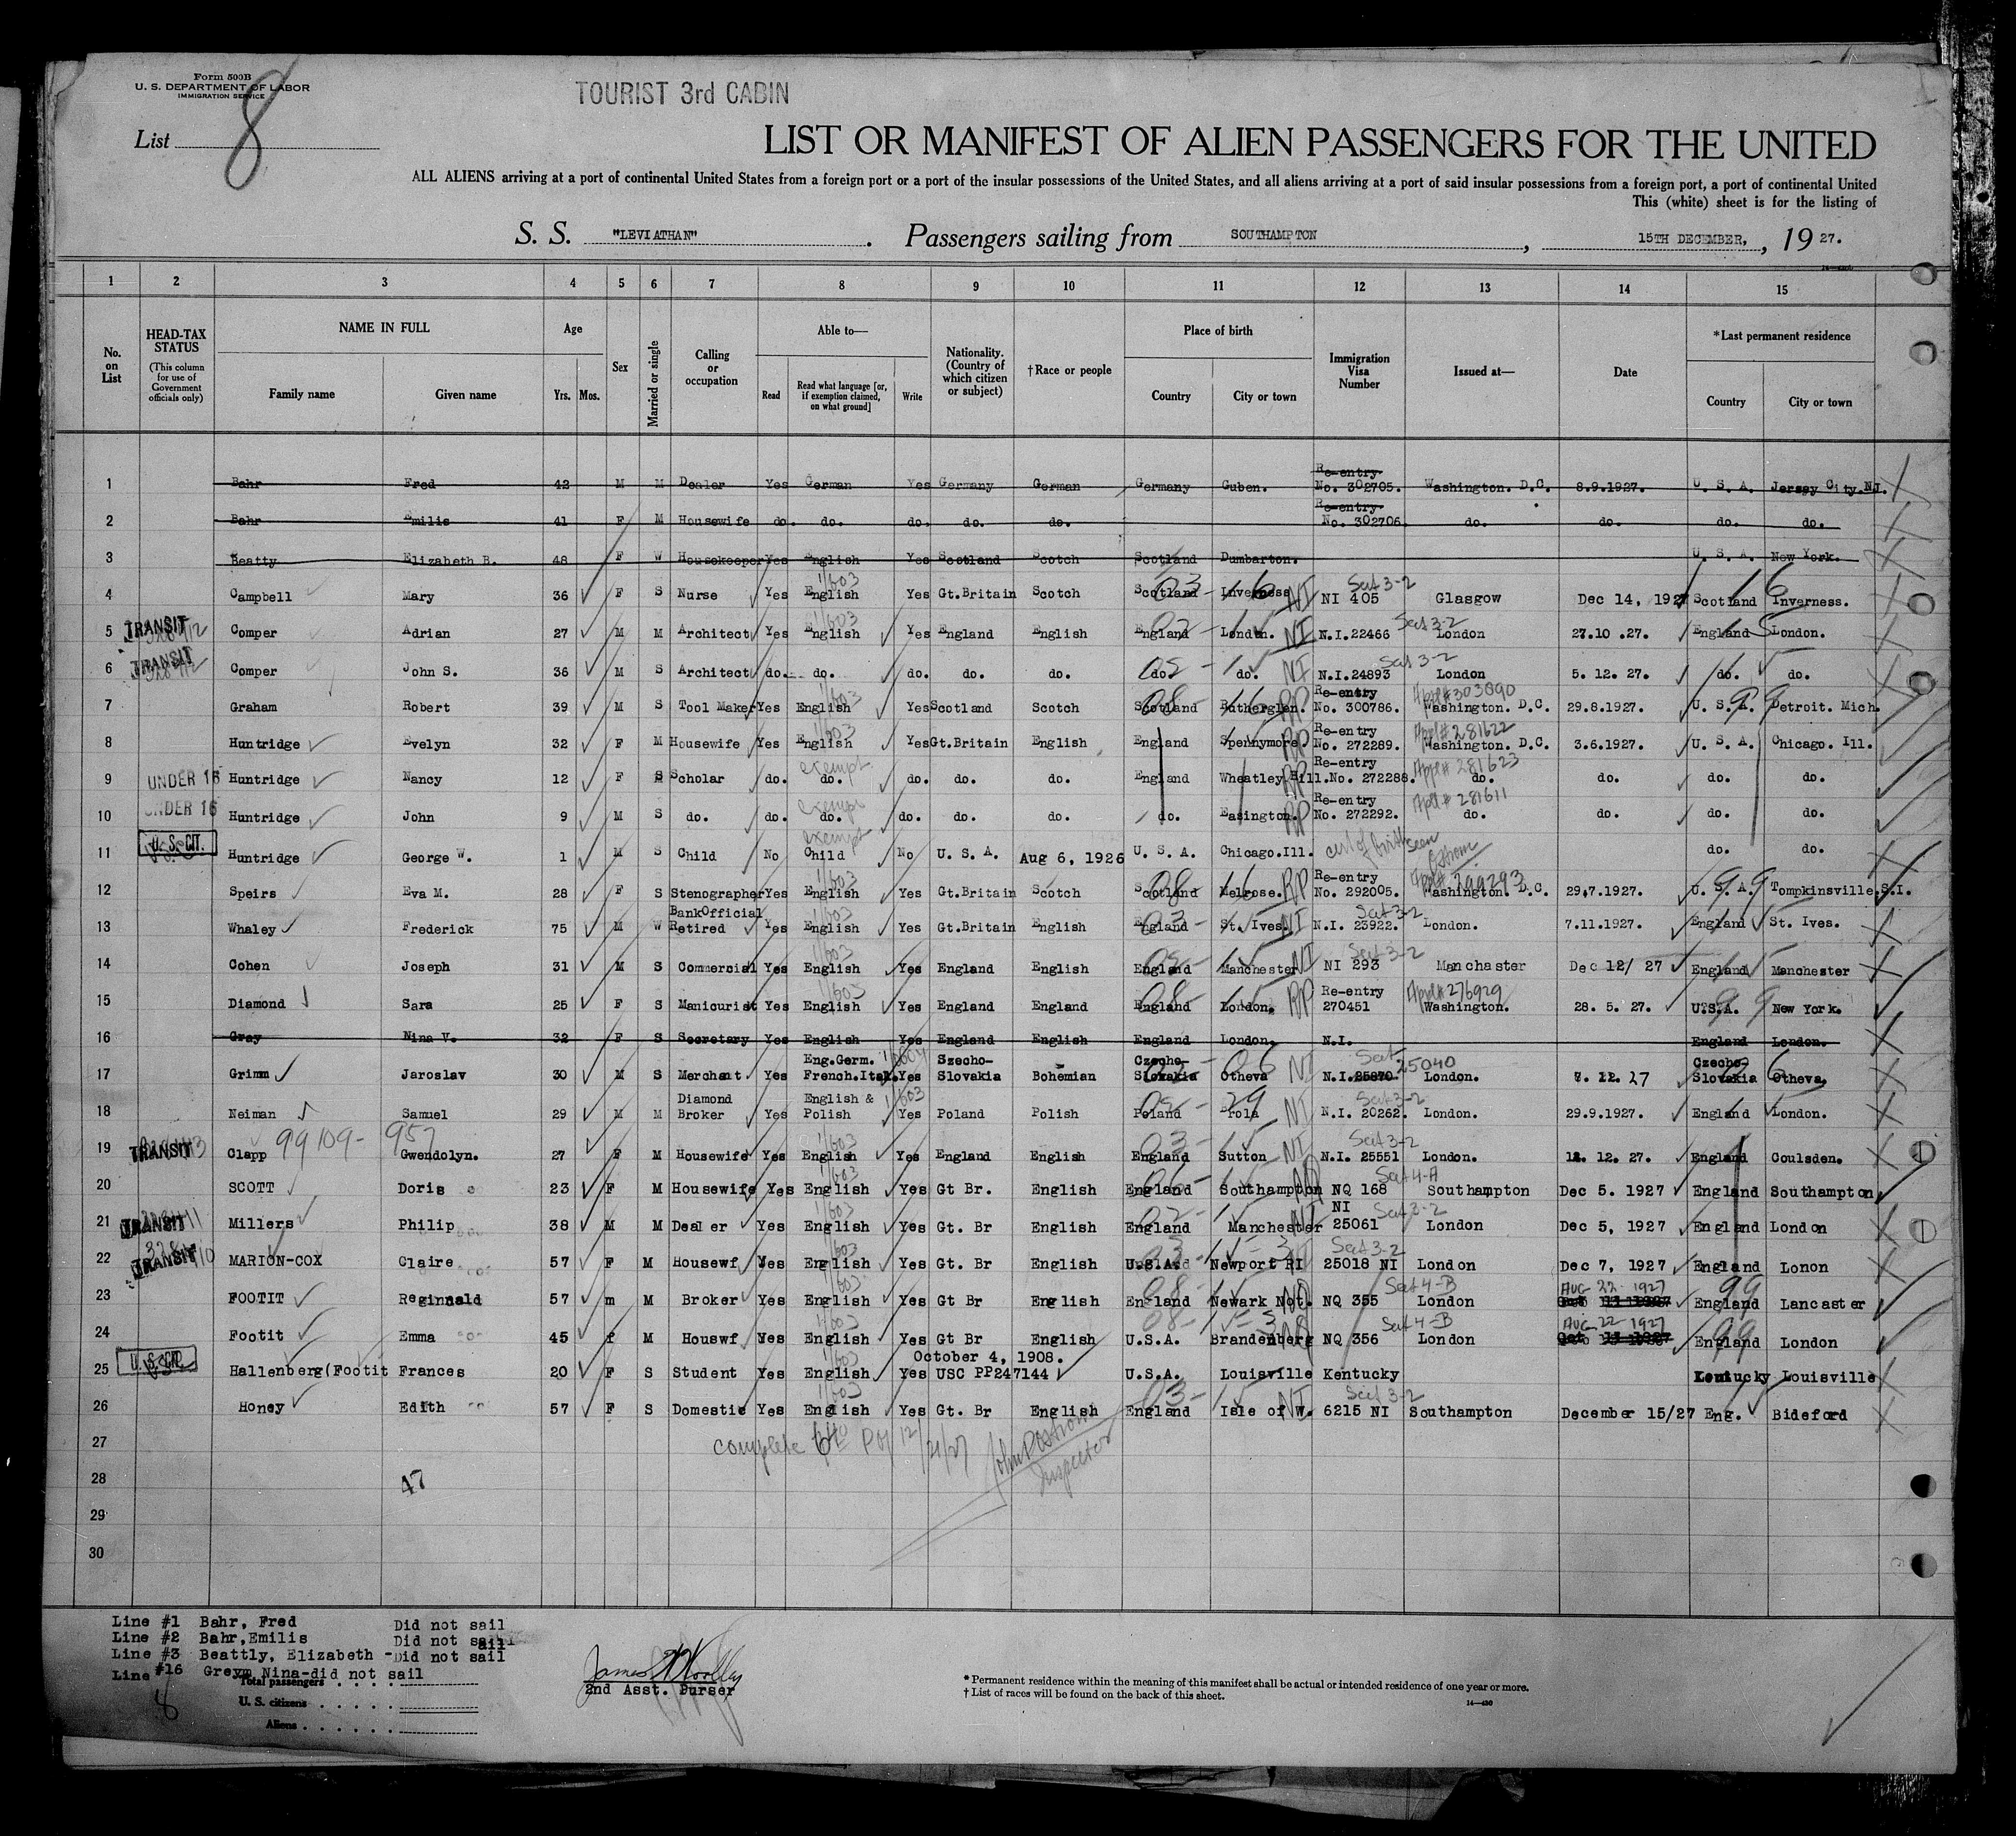 Form 500B
U. S. DEPARTMENT OF LABOR
IMMIGRATION SERVICE
TOURIST 3rd CABIN
List 8
LIST OR MANIFEST OF ALIEN PASSENGERS FOR THE UNITED
ALL ALIENS arriving at a port of continental United States from a foreign port or a port of the insular possessions of the United States, and all aliens arriving at a port of said insular possessions from a foreign port, a port of continental United
This (white) sheet is for the listing of
S. S. "LEVIATHAN". Passengers sailing from SOUTHAMPTON, 15TH DECEMBER, 19 27.
1 2 3 4 5 6 7 8 9 10 11 12 13 14 15
No. on List
HEAD-TAX STATUS
(This column for use of Government officials only)
NAME IN FULL
Family name Given name
Age
Yrs. Mos.
Sex
Married or single
Calling or occupation
Able to—
Read Read what language [or, if exemption claimed, on what ground] Write
Nationality. (Country of which citizen or subject)
†Race or people
Place of birth
Country City or town
Immigration Visa Number
Issued at—
Date
*Last permanent residence
Country City or town
1 Bahr Fred 42 M M Dealer Yes German Yes Germany German Germany Guben. Re-entry No. 302705. Washington. D.C. 8.9.1927. U. S. A. Jersey City.NJ.
2 Bahr Emilis 41 F M Housewife do. do. do. do. do. Re-entry No. 302706. do. do. do. do.
3 Beatty Elizabeth B. 48 F W Housekeeper Yes English Yes Scotland Scotch Scotland Dumbarton. U. S. A. New York.
4 Campbell Mary 36 F S Nurse Yes English Yes Gt.Britain Scotch Scotland Inverness NI 405 Glasgow Dec 14, 1927 Scotland Inverness.
5 TRANSIT Comper Adrian 27 M M Architect Yes English Yes England English England London. N.I.22466 London 27.10 .27. England London.
6 TRANSIT Comper John S. 36 M S Architect do. do. do. do. do. do. do. N.I.24893 London 5. 12. 27. do. do.
7 Graham Robert 39 M S Tool Maker Yes English Yes Scotland Scotch Scotland Rutherglen. RP Re-entry No. 300786. Appl#303090 Washington. D.C. 29.8.1927. U. S. A. Detroit. Mich.
8 Huntridge Evelyn 32 F M Housewife Yes English Yes Gt.Britain English England Spennymore RP Re-entry No. 272289. Appl#281622 Washington. D.C. 3.6.1927. U. S. A. Chicago. Ill.
9 UNDER 16 Huntridge Nancy 12 F S Scholar do. exempt do. do. do. do. England Wheatley Hill. RP Re-entry No. 272288. Appl# 281623 do. do. do. do.
10 UNDER 16 Huntridge John 9 M S do. do. exempt do. do. do. do. do. Easington. RP Re-entry No. 272292. Apl# 281611 do. do. do. do.
11 U. S. CIT. Huntridge George W. 1 M S Child No exempt Child No U. S. A. Aug 6, 1926 U. S. A. Chicago.Ill. cert of birth seen do. do.
12 Speirs Eva M. 28 F S Stenographer Yes English Yes Gt.Britain Scotch Scotland Melrose. RP Re-entry No. 292005. 299293 Washington. D.C. 29.7.1927. U. S. A. Tompkinsville.S.I.
13 Whaley Frederick 75 M W BankOfficial Retired Yes English Yes Gt.Britain English England St. Ives. NI N.I. 23922. London. 7.11.1927. England St. Ives.
14 Cohen Joseph 31 M S Commercial Yes English Yes England English England Manchester NI NI 293 Manchester Dec 12/ 27 England Manchester
15 Diamond Sara 25 F S Manicurist Yes English Yes England England England London. RP Re-entry 270451 Appl#276929 Washington. 28. 5. 27. U.S.A. New York.
16 Gray Nina V. 32 F S Secretary Yes English Yes England English England London. N.I. England London.
17 Grimm Jaroslav 30 M S Merchant Yes Eng.Germ. French.Ital. Yes Szecho-Slovakia Bohemian Czecho-Slovakia Otheva NI N.I.25870 25040 London. 7. 12. 27 Czecho-Slovakia Otheva.
18 Neiman Samuel 29 M M Diamond Broker Yes English & Polish Yes Poland Polish Poland Prola NI N.I. 20262. London. 29.9.1927. England London.
19 TRANSIT Clapp 99109-957 Gwendolyn. 27 F M Housewife Yes English Yes England English England Sutton NI N.I. 25551 London. 12. 12. 27. England Coulsden.
20 SCOTT Doris 23 F M Housewife Yes English Yes Gt Br. English England Southampton NQ 168 Southampton Dec 5. 1927 England Southampton
21 TRANSIT Millers Philip 38 M M Dealer Yes English Yes Gt. Br English England Manchester NI 25061 London Dec 5, 1927 England London
22 TRANSIT MARION-COX Claire 57 F M Housewf Yes English Yes Gt. Br English U.S.A. Newport RI 25018 NI London Dec 7, 1927 England Lonon
23 FOOTIT Reginnald 57 m M Broker Yes English Yes Gt Br English England Newark Not. NQ 355 London AUG 22 1927 England Lancaster
24 Footit Emma 45 f M Houswf Yes English Yes Gt Br English U.S.A. Brandenberg NQ 356 London AUG 22 1927 England London
25 U. S. CIT. Hallenberg(Footit Frances 20 F S Student Yes English Yes October 4, 1908. USC PP247144 U.S.A. Louisville Kentucky Kentucky Louisville
26 Honey Edith 57 F S Domestic Yes English Yes Gt. Br English England Isle of W. 6215 NI Southampton December 15/27 Eng. Bideford
27
complete 12/21/27
Inspector
28
47
29
30
Line #1 Bahr, Fred Did not sail
Line #2 Bahr,Emilis Did not sail
Line #3 Beattly, Elizabeth -Did not sail
Line #16 Greym Nina-did not sail
Total passengers
U. S. citizens
Aliens
8
James Woolley
2nd Asst. Purser
* Permanent residence within the meaning of this manifest shall be actual or intended residence of one year or more.
† List of races will be found on the back of this sheet.
14—430